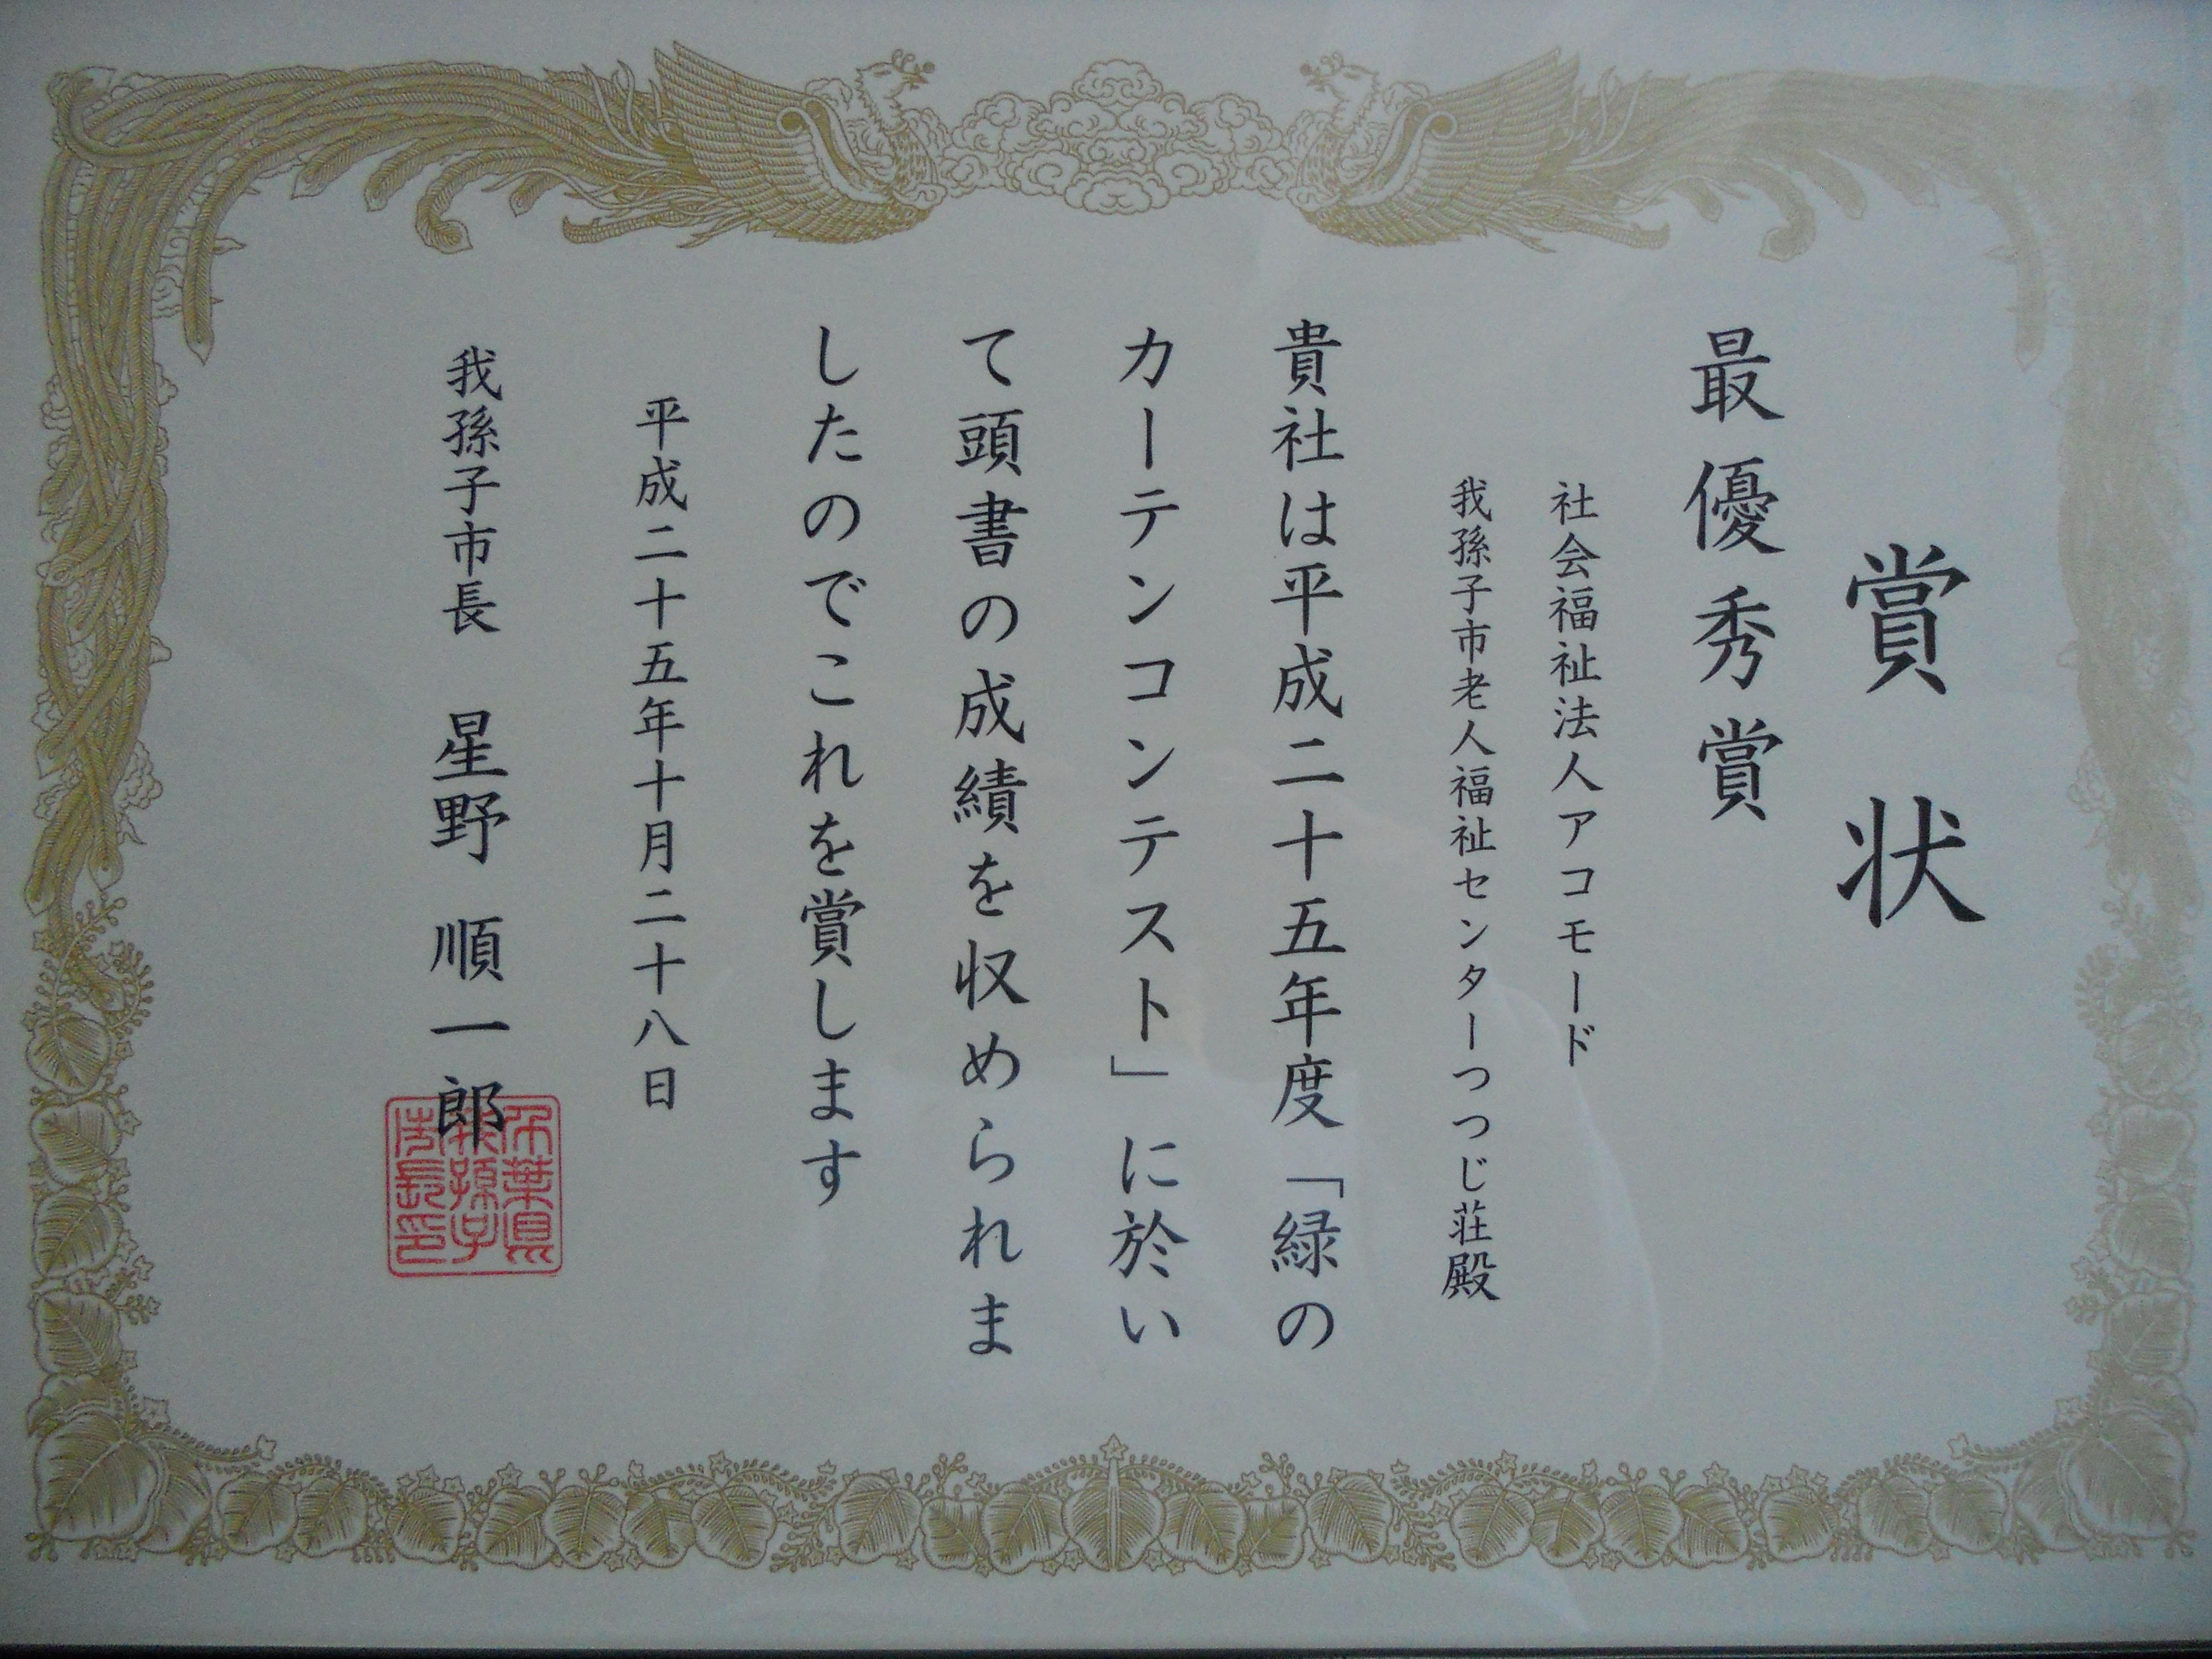 賞状
最優秀賞
社会福祉法人アコモード
我孫子市老人福祉センターつつじ荘殿
貴社は平成二十五年度「緑の
カーテンコンテスト」に於い
て頭書の成績を収められま
したのでこれを賞します
平成二十五年十月二十八日
我孫子市長 星野 順一郎
千葉県
我孫子
市長印